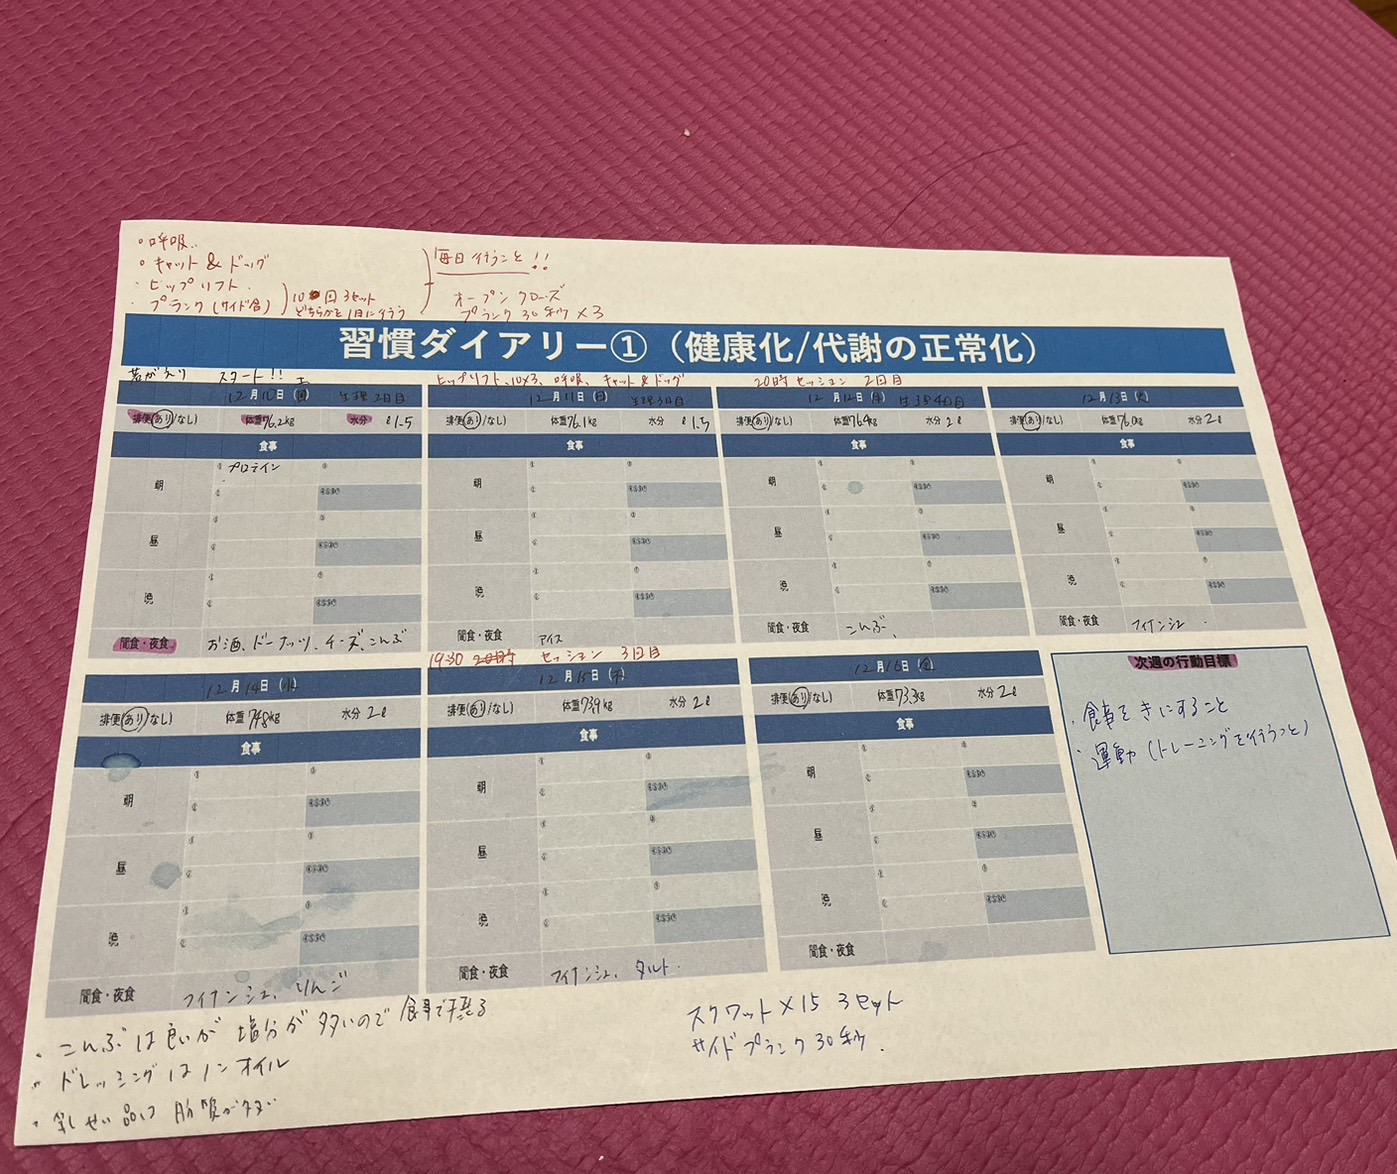 ・呼吸
・キャット&ドッグ
・ヒップリフト
・プランク(サイド含)
10回3セット
どちらかを1日に行う
毎日行うこと!!
オープンクローズ
プランク30秒×3
習慣ダイアリー①(健康化/代謝の正常化)
スタート!!
ヒップリフト、10×3、呼吸、キャット&ドッグ
20時セッション 2回目
12月10日 生理2日目
排便(あり/なし) 体重76.2kg 水分 ℓ1.5
食事
朝 ① プロテイン ③
②
昼 ① ③
②
晩 ① ③
②
間食・夜食 お酒、ドーナッツ、チーズ、こんぶ
12月11日(日) 生理3日目
排便(あり/なし) 体重76.1kg 水分 ℓ1.5
食事
朝 ① ③
②
昼 ① ③
②
晩 ① ③
②
間食・夜食 アイス
12月12日 生理4日目
排便(あり/なし) 体重76.4kg 水分 2ℓ
食事
朝 ① ③
②
昼 ① ③
②
晩 ① ③
②
間食・夜食 こんぶ、
12月13日(火)
排便(あり/なし) 体重76.0kg 水分 2ℓ
食事
朝 ① ③
②
昼 ① ③
②
晩 ① ③
②
間食・夜食 フィナンシェ
19:30 20時 セッション 3回目
12月14日(水)
排便(あり/なし) 体重74.8kg 水分 2ℓ
食事
朝 ① ③
②
昼 ① ③
②
晩 ① ③
②
間食・夜食 フィナンシェ、りんご
12月15日(木)
排便(あり/なし) 体重73.9kg 水分 2ℓ
食事
朝 ① ③
②
昼 ① ③
②
晩 ① ③
②
間食・夜食 フィナンシェ、タルト
12月16日(金)
排便(あり/なし) 体重73.3kg 水分 2ℓ
食事
朝 ① ③
②
昼 ① ③
②
晩 ① ③
②
間食・夜食
次週の行動目標
・食事をきにすること
・運動(トレーニングを行うこと)
・こんぶは良いが塩分が多いので食事で摂る
・ドレッシングはノンオイル
・乳せい品は脂質が多い
スクワット×15 3セット
サイドプランク30秒